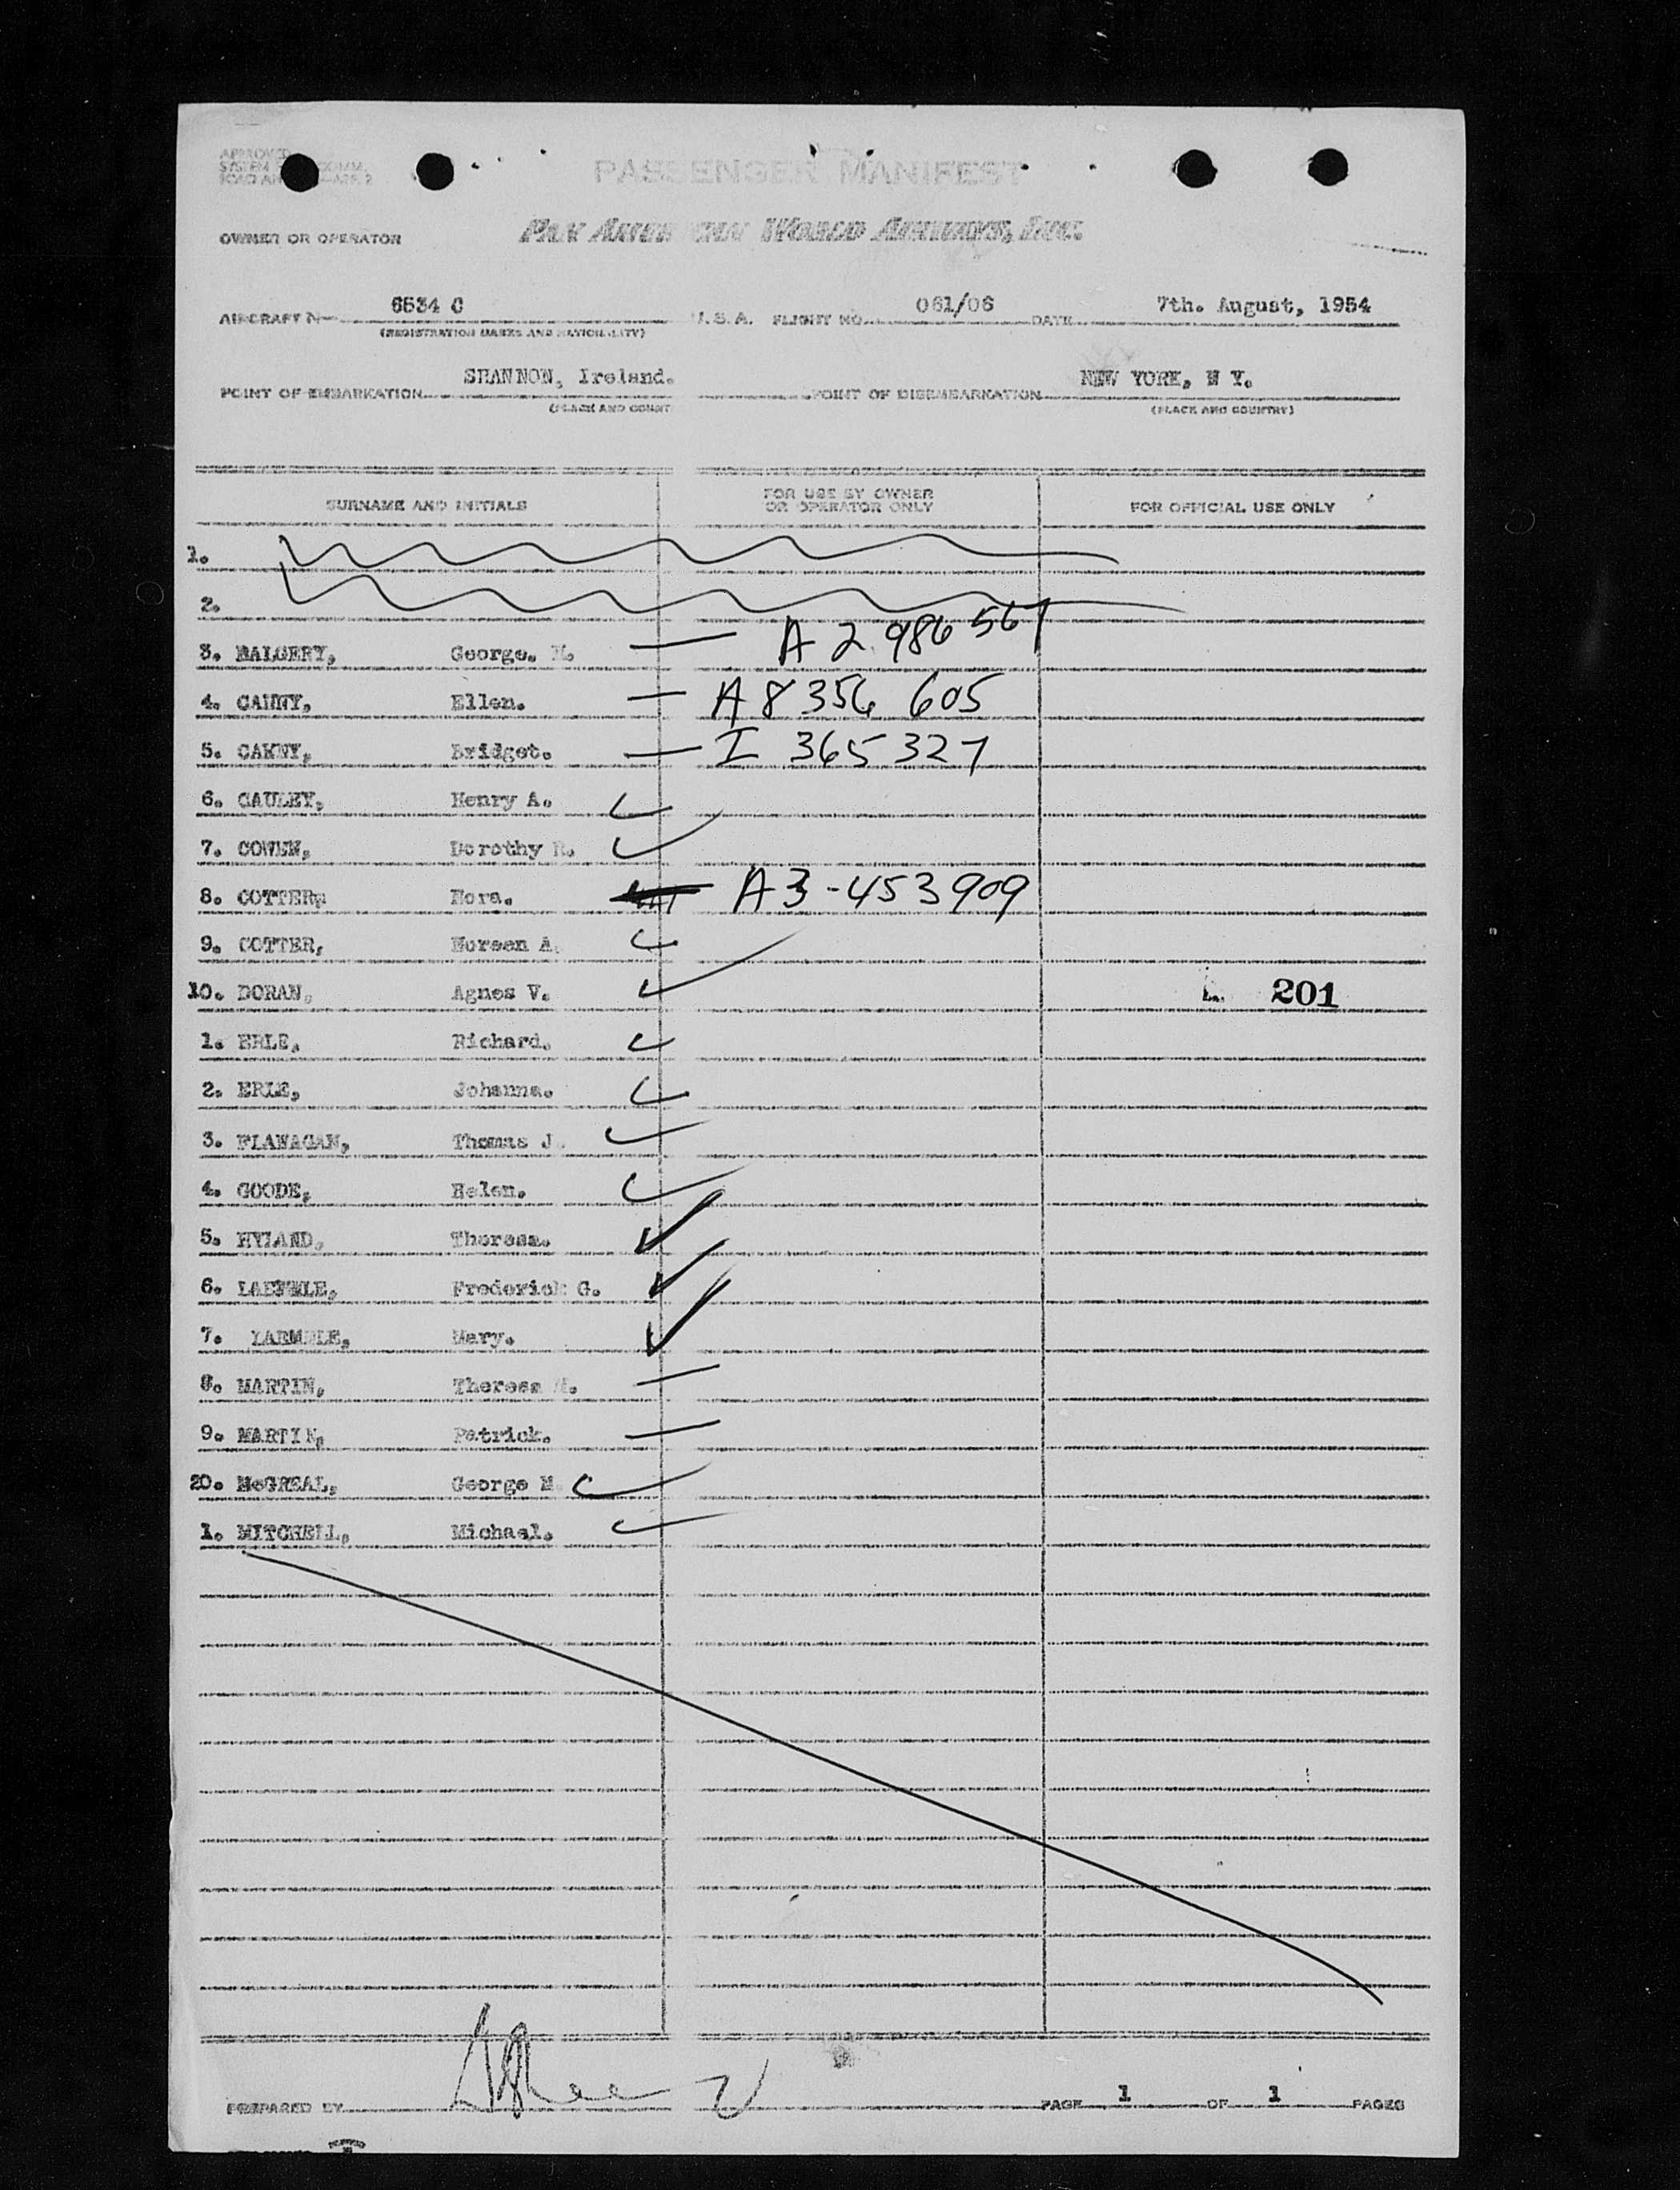 APPROVED
PASSENGER MANIFEST
OWNER OR OPERATOR PAN AMERICAN WORLD AIRWAYS, INC.
AIRCRAFT N 6534 C U.S.A. FLIGHT NO. 061/06 DATE 7th. August, 1954
(REGISTRATION MARKS AND NATIONALITY)
POINT OF EMBARKATION SHANNON, Ireland. POINT OF DISEMBARKATION NEW YORK, N Y.
(PLACE AND COUNT (PLACE AND COUNTRY)
SURNAME AND INITIALS FOR USE BY OWNER OR OPERATOR ONLY FOR OFFICIAL USE ONLY
1.
2.
3. George. A 2 986 567
4. CANNY, Ellen. A8 356 605
5. CANNY, Bridget. I 365 327
6. CAULEY, Henry A.
7. COWEN, Dorothy R.
8. COTTER, Nora. A3-453909
9. COTTER, Noreen A.
10. DORAN, Agnes V. 201
1. ERLE, Richard.
2. ERLE, Johanna.
3. FLANAGAN, Thomas J.
4. GOODE, Helen.
5. HYLAND, Theresa.
6. Frederick G.
7. Mary.
8. MARTIN, Theresa
9. MARTIN, Patrick.
20. McGREAL, George M
1. MITCHELL, Michael.
PREPARED BY PAGE 1 OF 1 PAGES